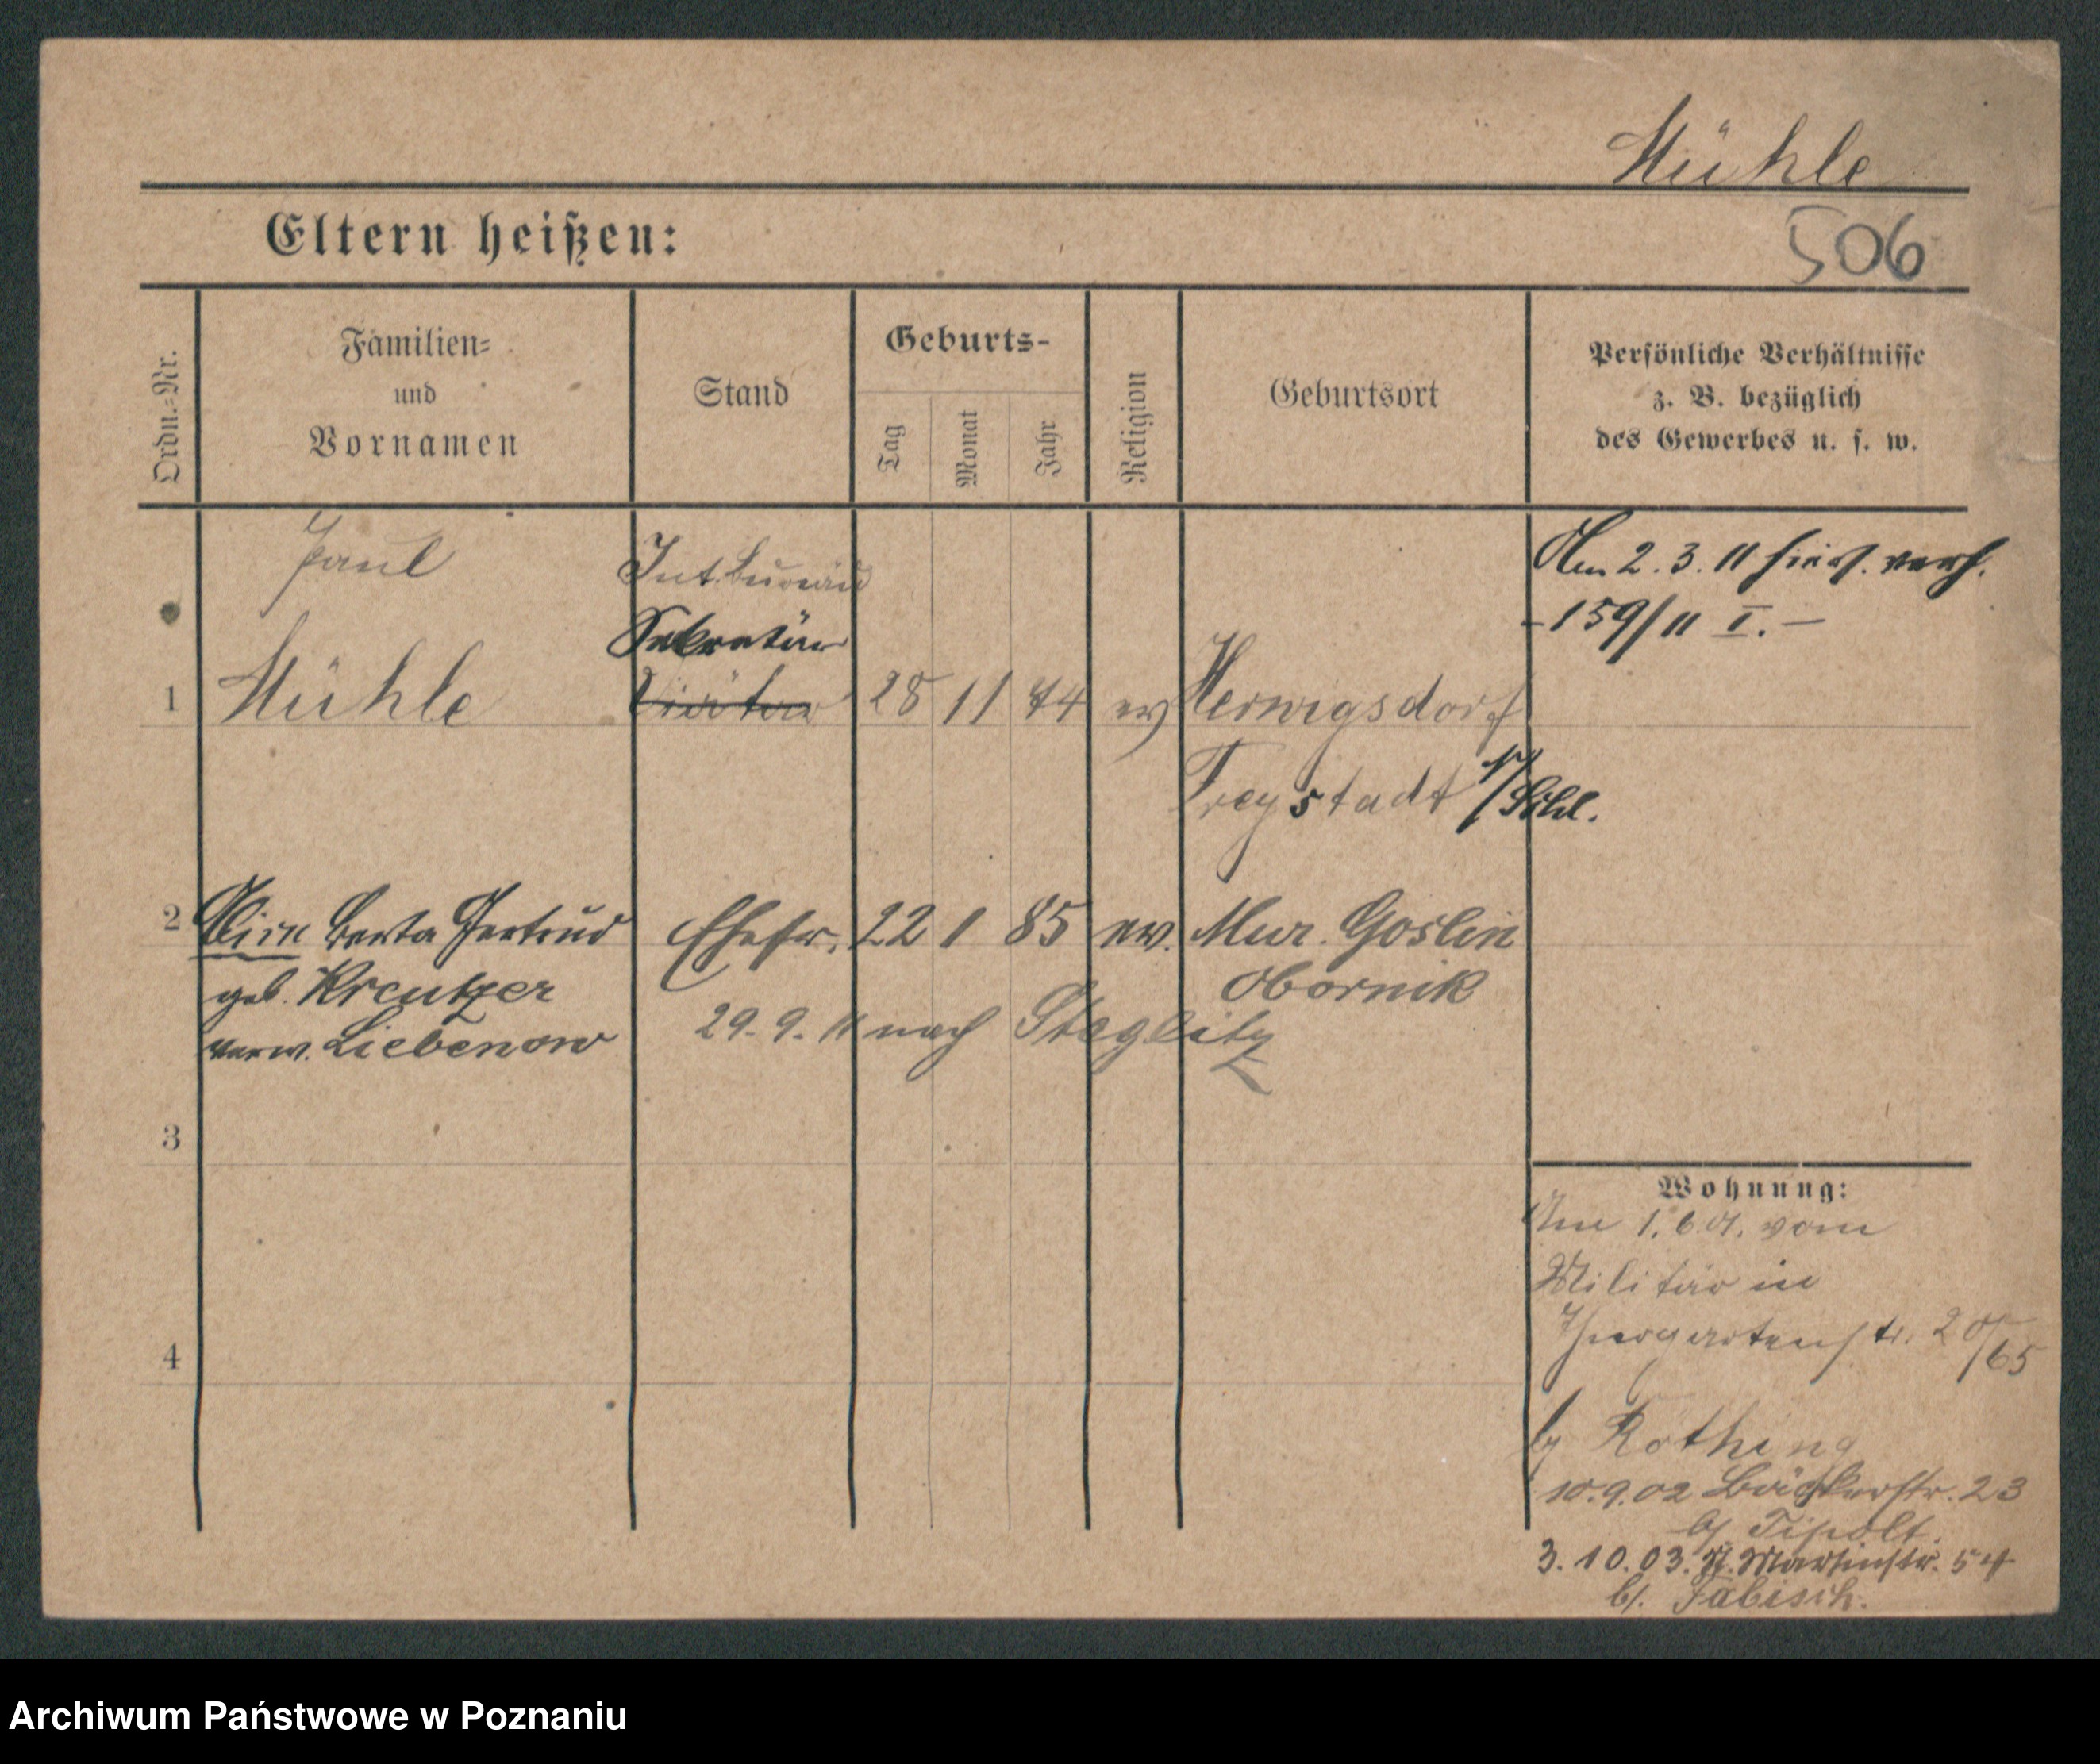 Mühle
Eltern heißen:
506
Ordn.=Nr.
Familien=
und
Vornamen
Stand
Geburts-
Tag
Monat
Jahr
Religion
Geburtsort
Persönliche Verhältnisse
z. B. bezüglich
des Gewerbes u. s. w.
Paul
Int. Bureau
Sekretär
1 Mühle 28 11 74 ev Herwigsdorf
Freystadt /Schl.
Am 2. 3. 11 hiers. verh.
-159/11 I.-
2 Berta Gertrud Ehefr. 22 1 85 ev. Mur. Goslin
geb. Kreutzer Obornik
verw. Liebenow 29. 9. 11 nach Steglitz
3
4
Wohnung:
Am 1. 6. 01. vom
Militär in
Thiergartenstr. 20/65
by Röthing
10. 9. 02 Bäckerstr. 23
b/ Tipolt
3. 10. 03. St. Martinstr. 54
b/. Fabisch.
Archiwum Państwowe w Poznaniu